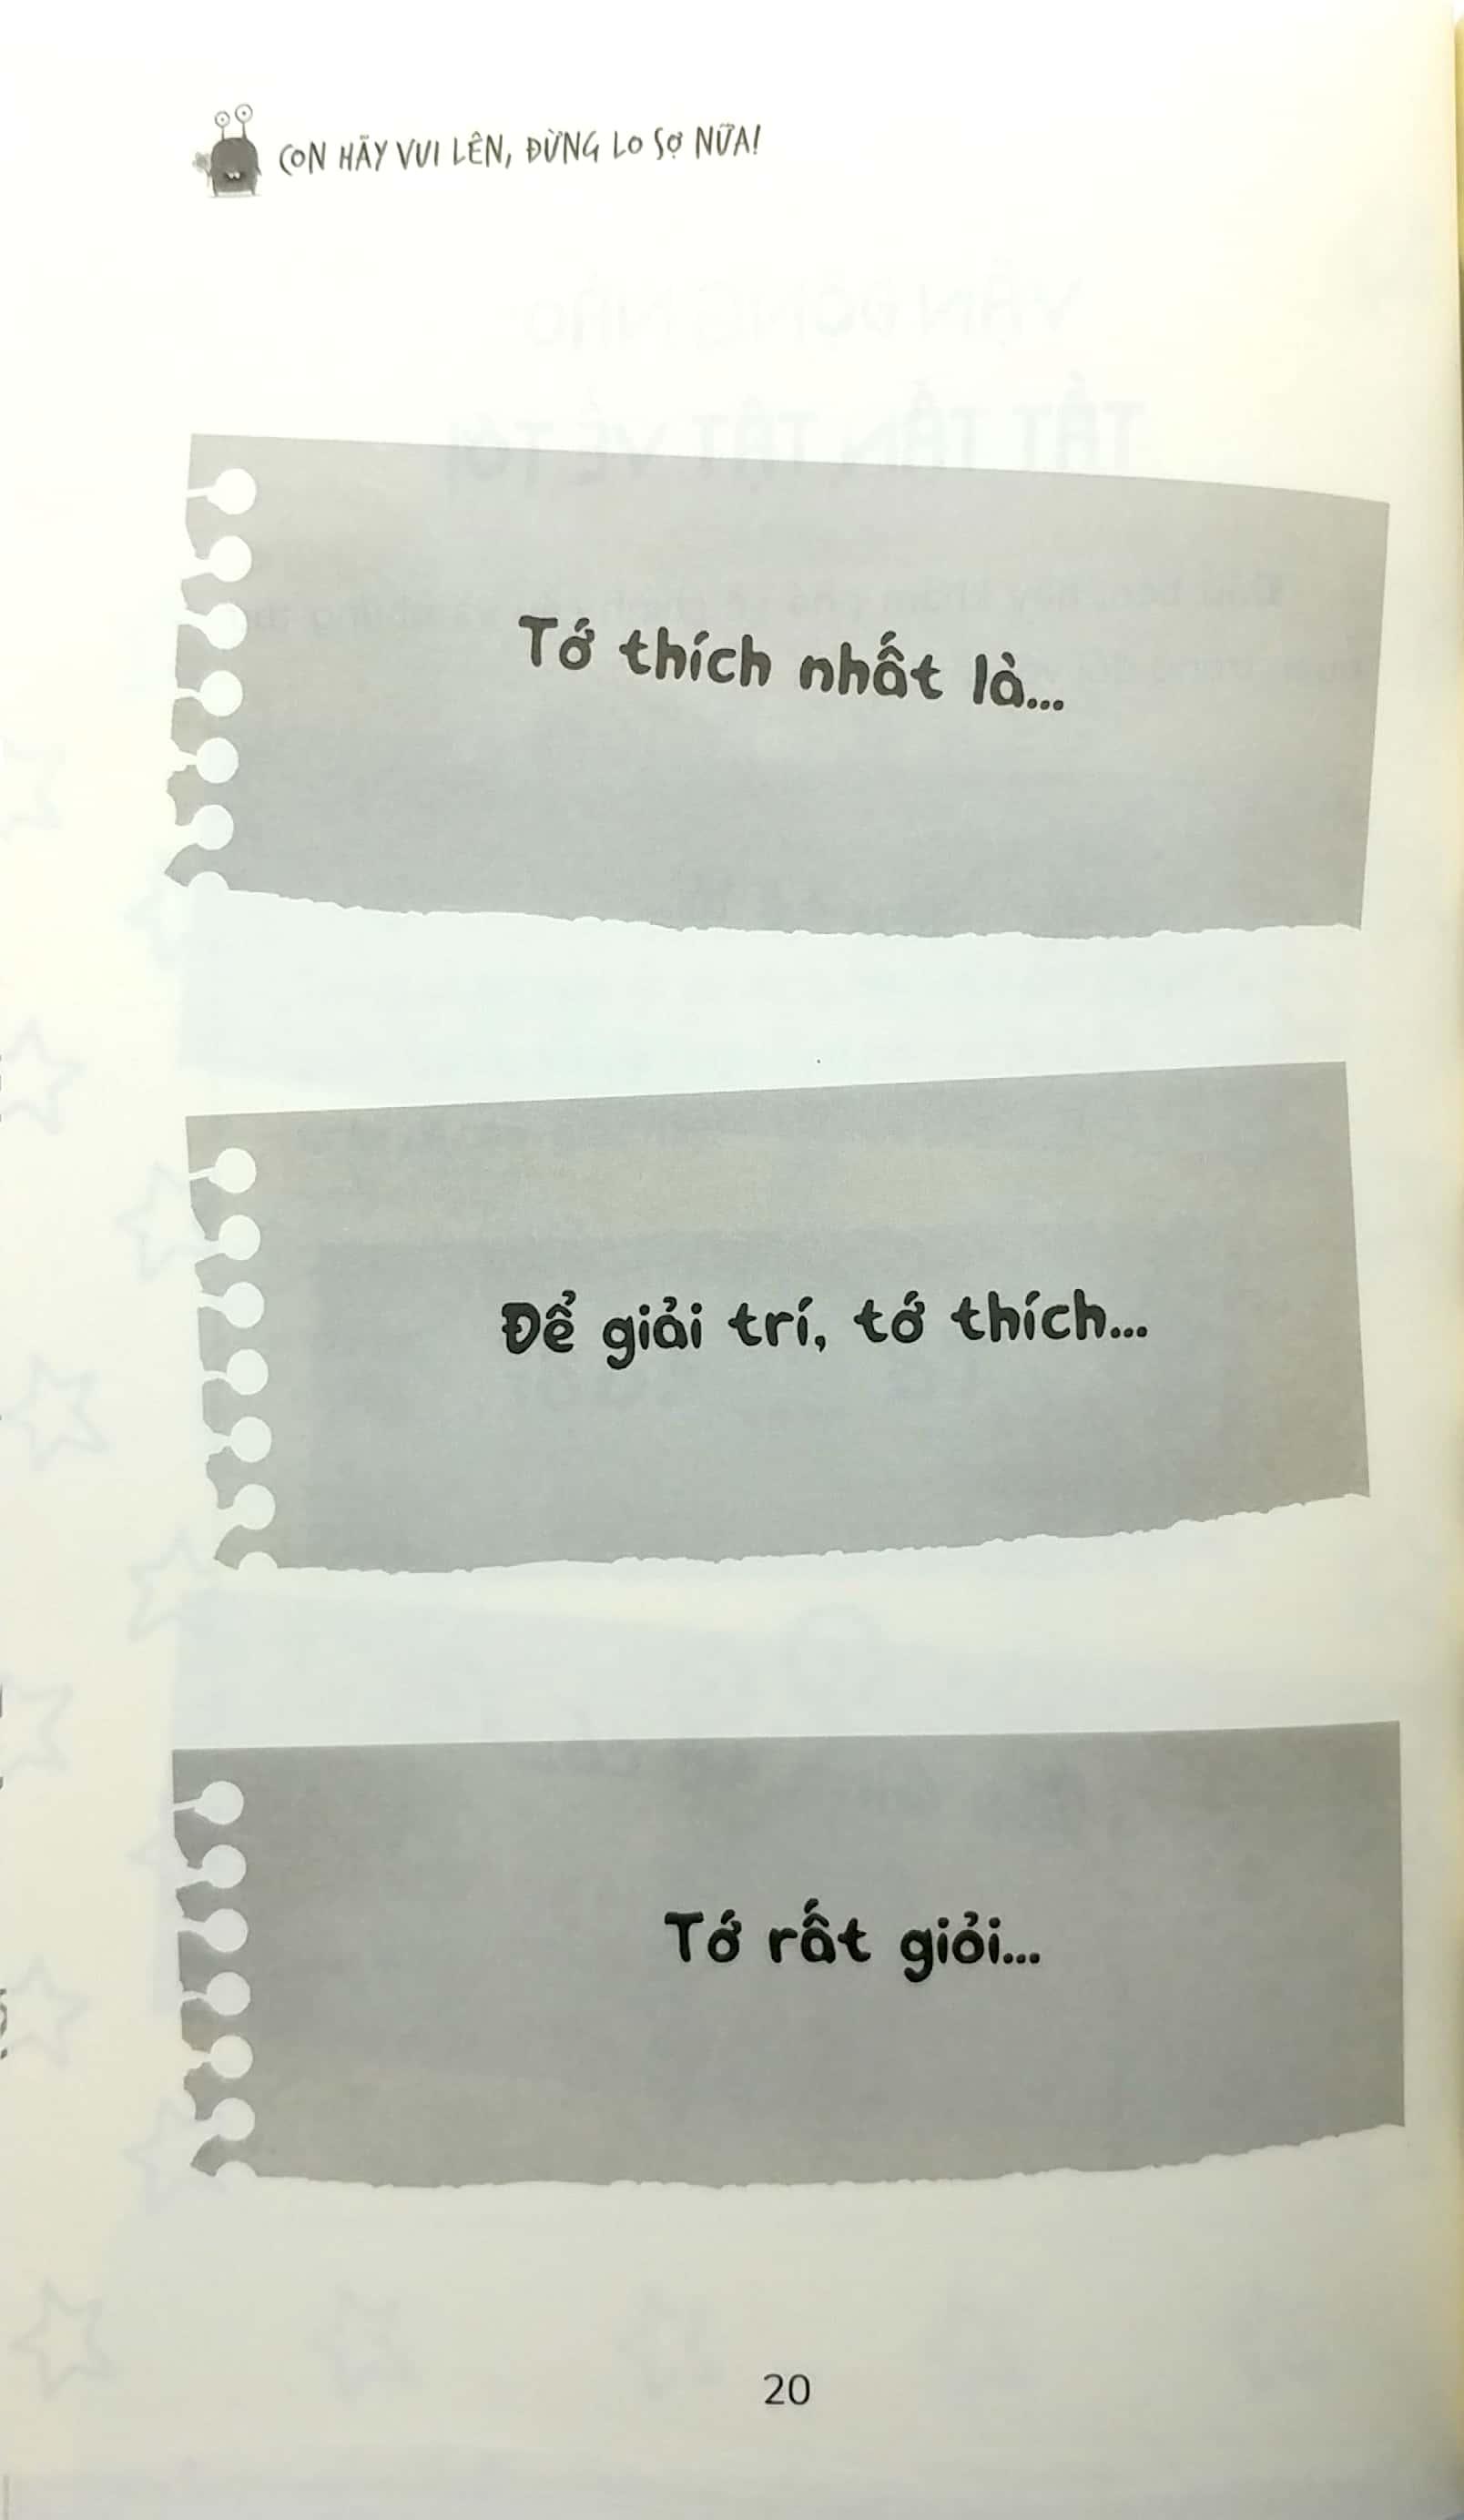 CON HÃY VUI LÊN, ĐỪNG LO SỢ NỮA!
Tớ thích nhất là...
Để giải trí, tớ thích...
Tớ rất giỏi...
20